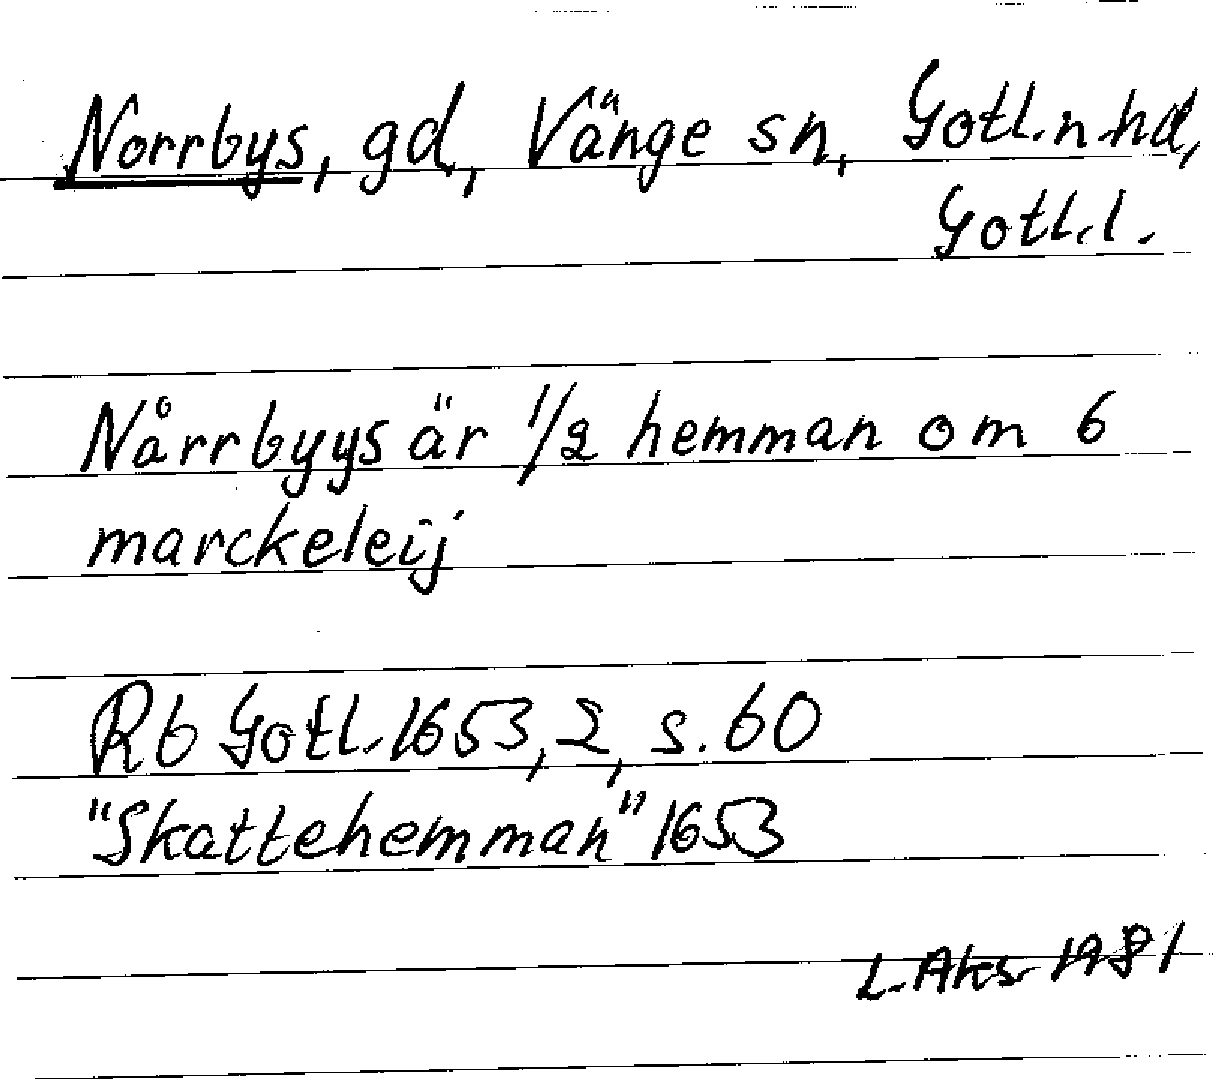 Norrbys, gd, Vänge sn, Gotl. n. hd,
Gotl. l.
Nårrbyys är 1/2 hemman om 6
marckeleij
Rb Gotl. 1653, 2, s. 60
"Skattehemman" 1653
L. Aks. 1981